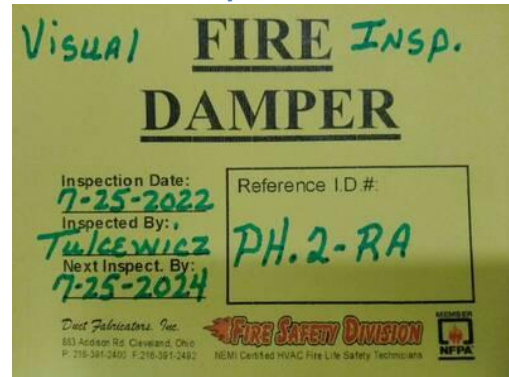 Visual FIRE INSP.
DAMPER
Inspection Date:
7-25-2022
Inspected By:
Tulcewicz
Next Inspect. By:
7-25-2024
Reference I.D.#:
PH.2-RA
Duct Fabricators, Inc.
883 Addison Rd. Cleveland, Ohio
P: 216-391-2400 F:216-391-2492
FIRE SAFETY DIVISION
NEMI Certified HVAC Fire Life Safety Technicians
MEMBER
NFPA